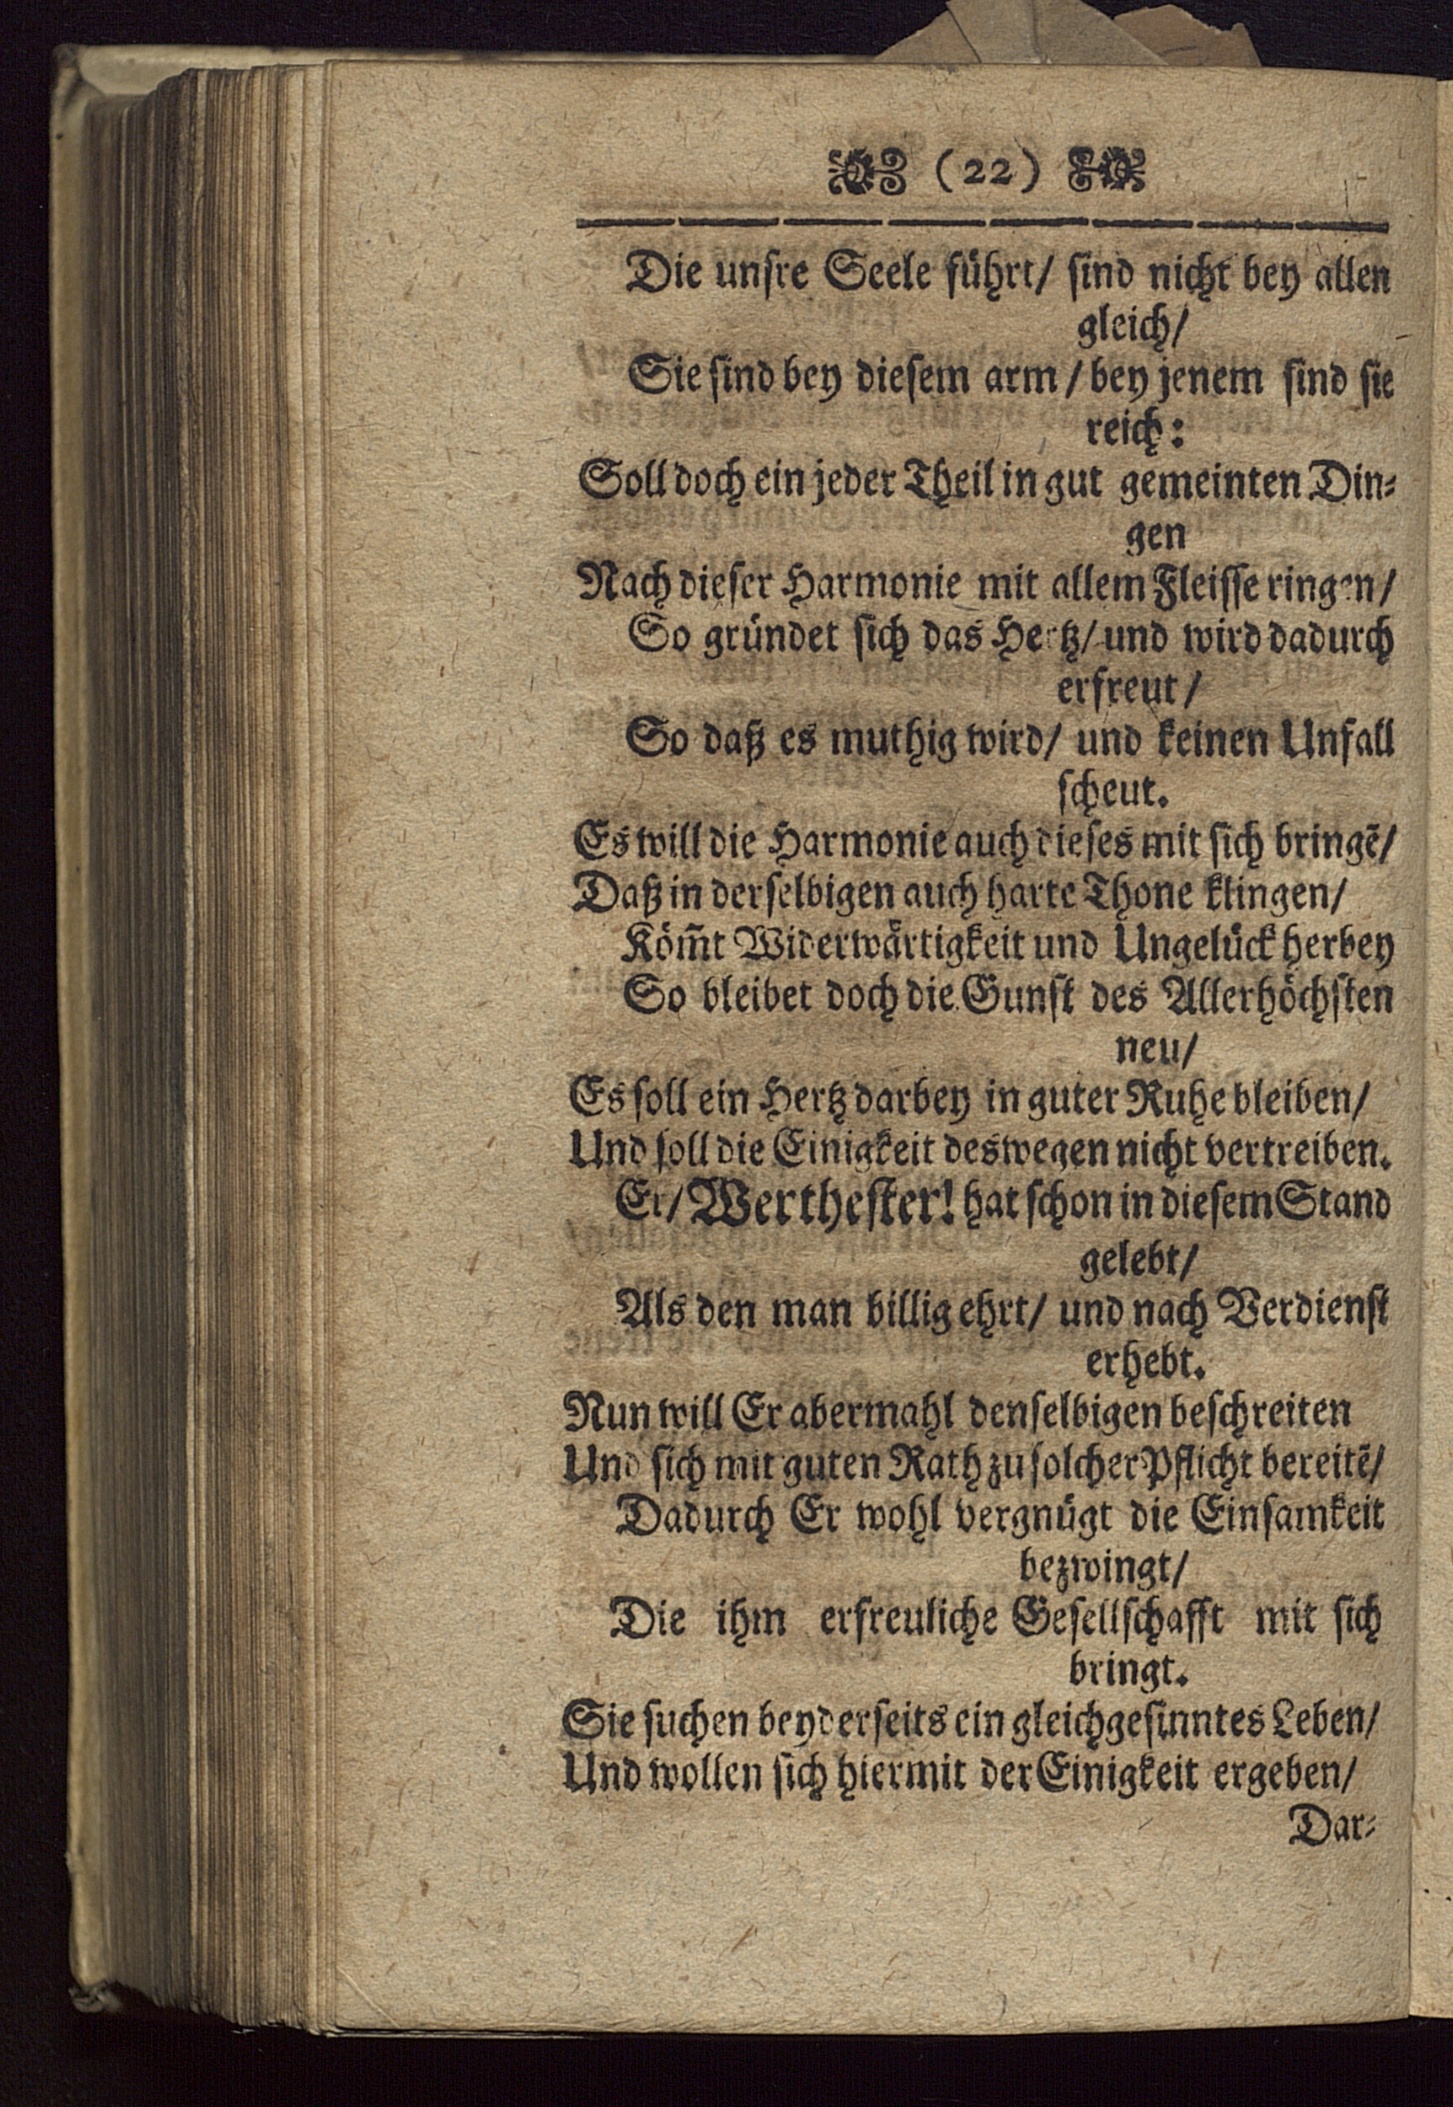 (22)
Die unsre Seele führt/ sind nicht bey allen
gleich/
Sie sind bey diesem arm/ bey jenem sind sie
reich:
Soll doch ein jeder Theil in gut gemeinten Din-
gen
Nach dieser Harmonie mit allem Fleisse ringen/
So gründet sich das Hertz/ und wird dadurch
erfreut/
So daß es muthig wird/ und keinen Unfall
scheut.
Es will die Harmonie auch dieses mit sich bringē/
Daß in derselbigen auch harte Thone klingen/
Köm̃t Widerwärtigkeit und Ungelück herbey
So bleibet doch die Gunst des Allerhöchsten
neu/
Es soll ein Hertz darbey in guter Ruhe bleiben/
Und soll die Einigkeit deswegen nicht vertreiben.
Er/ Werthester! hat schon in diesem Stand
gelebt/
Als den man billig ehrt/ und nach Verdienst
erhebt.
Nun will Er abermahl denselbigen beschreiten
Und sich mit guten Rath zu solcher Pflicht bereitē/
Dadurch Er wohl vergnügt die Einsamkeit
bezwingt/
Die ihm erfreuliche Gesellschafft mit sich
bringt.
Sie suchen beyderseits ein gleichgesinntes Leben/
Und wollen sich hiermit der Einigkeit ergeben/
Dar-